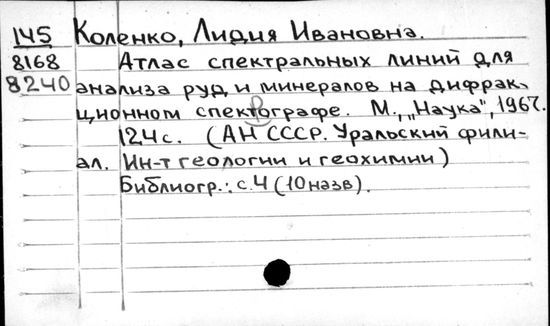 145 Коленко, Лидия Ивановна.
8168 Атлас спектральных линий для
8240 анализа руд и минералов на дифрак-
ционном спектрографе. М., „Наука", 1967.
124 с. (АН СССР. Уральский фили-
ал. Ин-т геологии и геохимии)
Библиогр.: с. 4 (10 назв).